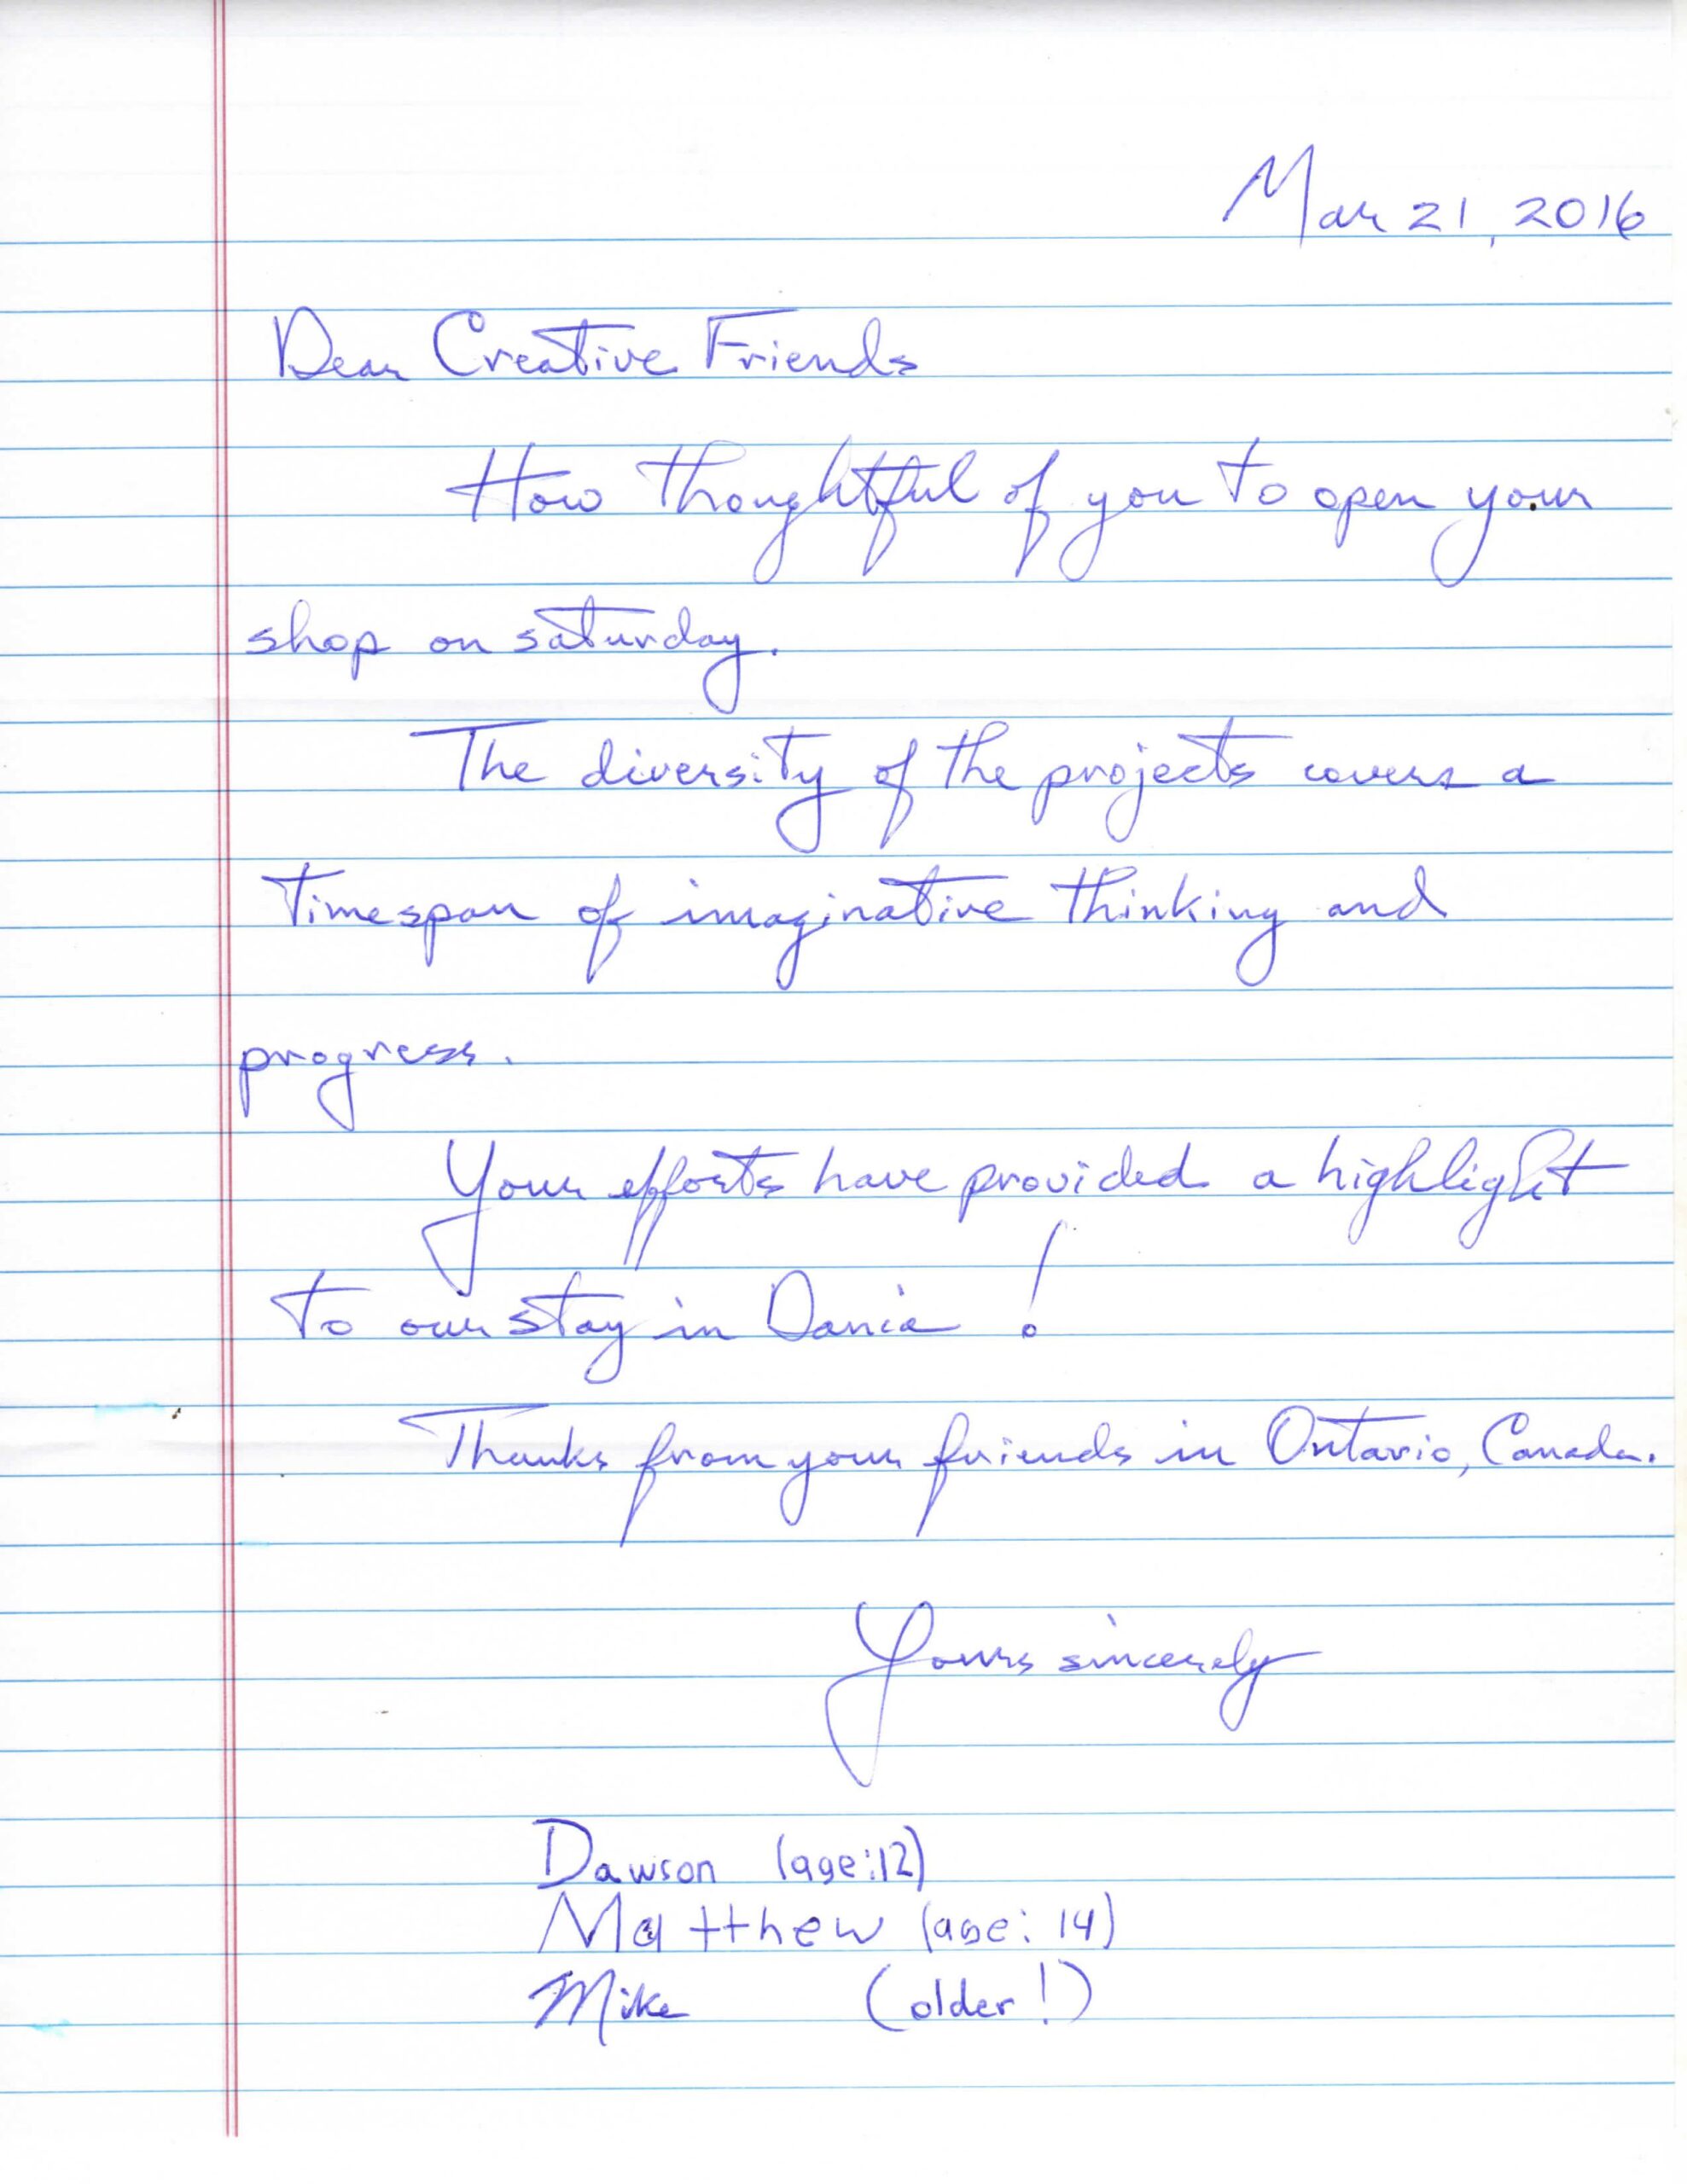 Mar 21, 2016
Dear Creative Friends
How thoughtful of you to open your
shop on saturday.
The diversity of the projects covers a
timespan of imaginative thinking and
progress.
Your efforts have provided a highlight
to our stay in Dania !
Thanks from your friends in Ontario, Canada.
Yours sincerely
Dawson (age:12)
Matthew (age: 14)
Mike (older!)